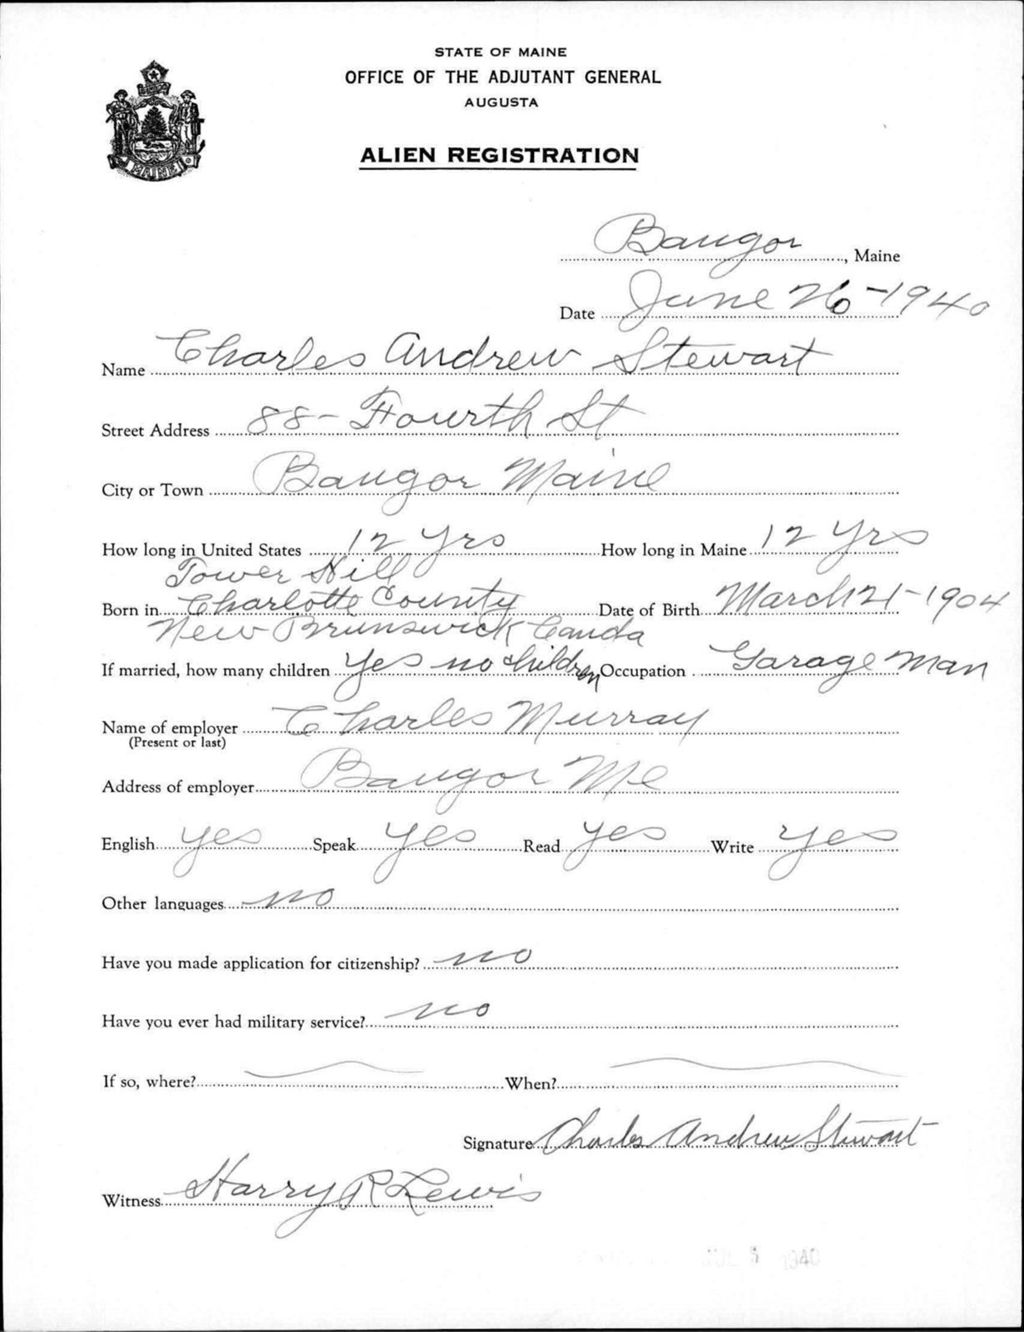 STATE OF MAINE
OFFICE OF THE ADJUTANT GENERAL
AUGUSTA
ALIEN REGISTRATION
MAINE
Bangor, Maine
Date June 26-1940
Name Charles Andrew Stewart
Street Address 88- Fourth St
City or Town Bangor Maine
How long in United States 12 Yrs How long in Maine 12 Yrs
Tower Hill
Born in Charlotte County Date of Birth March 21-1904
New Brunswick Canda
If married, how many children Yes no children Occupation Garage man
Name of employer Charles Murray
(Present or last)
Address of employer Bangor Me
English yes Speak yes Read yes Write yes
Other languages no
Have you made application for citizenship? no
Have you ever had military service? no
If so, where? When?
Signature Charles Andrew Stewart
Witness Harry R Lewis
1940